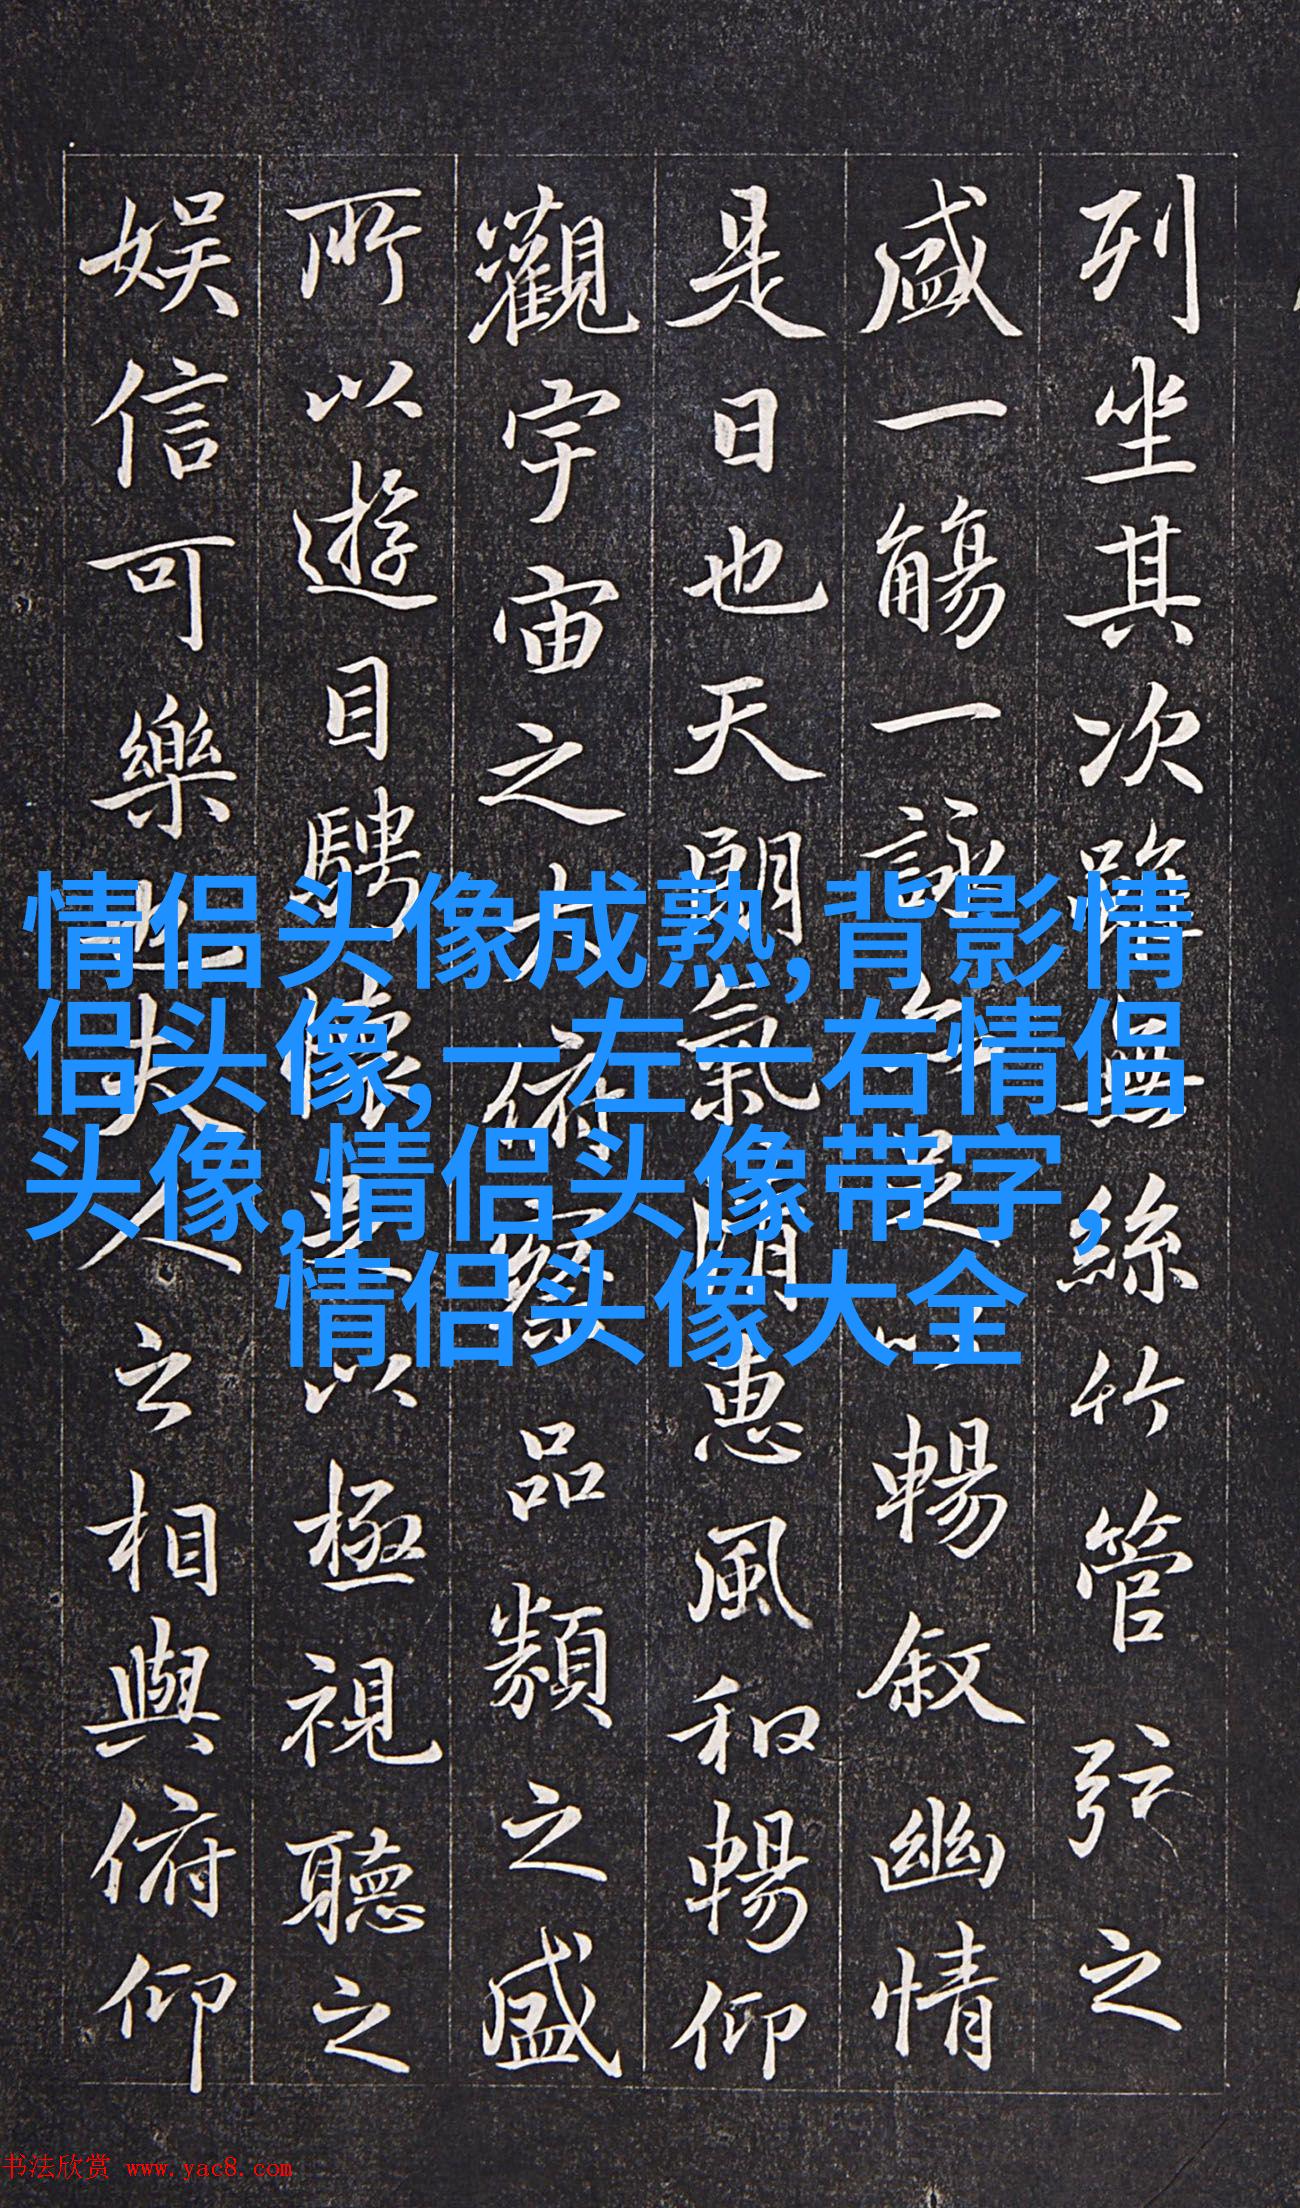 列坐其次雖無絲竹管弦之
盛一觴一詠亦足以暢敘幽情
是日也天朗氣清惠風和暢仰
觀宇宙之大俯察品類之盛
所以遊目騁懷足以極視聽之
娛信可樂也夫人之相與俯仰
情侣头像成熟,背影情
侣头像,一左一右情侣
头像,情侣头像带字,
情侣头像大全
书法欣赏 www.yac8.com